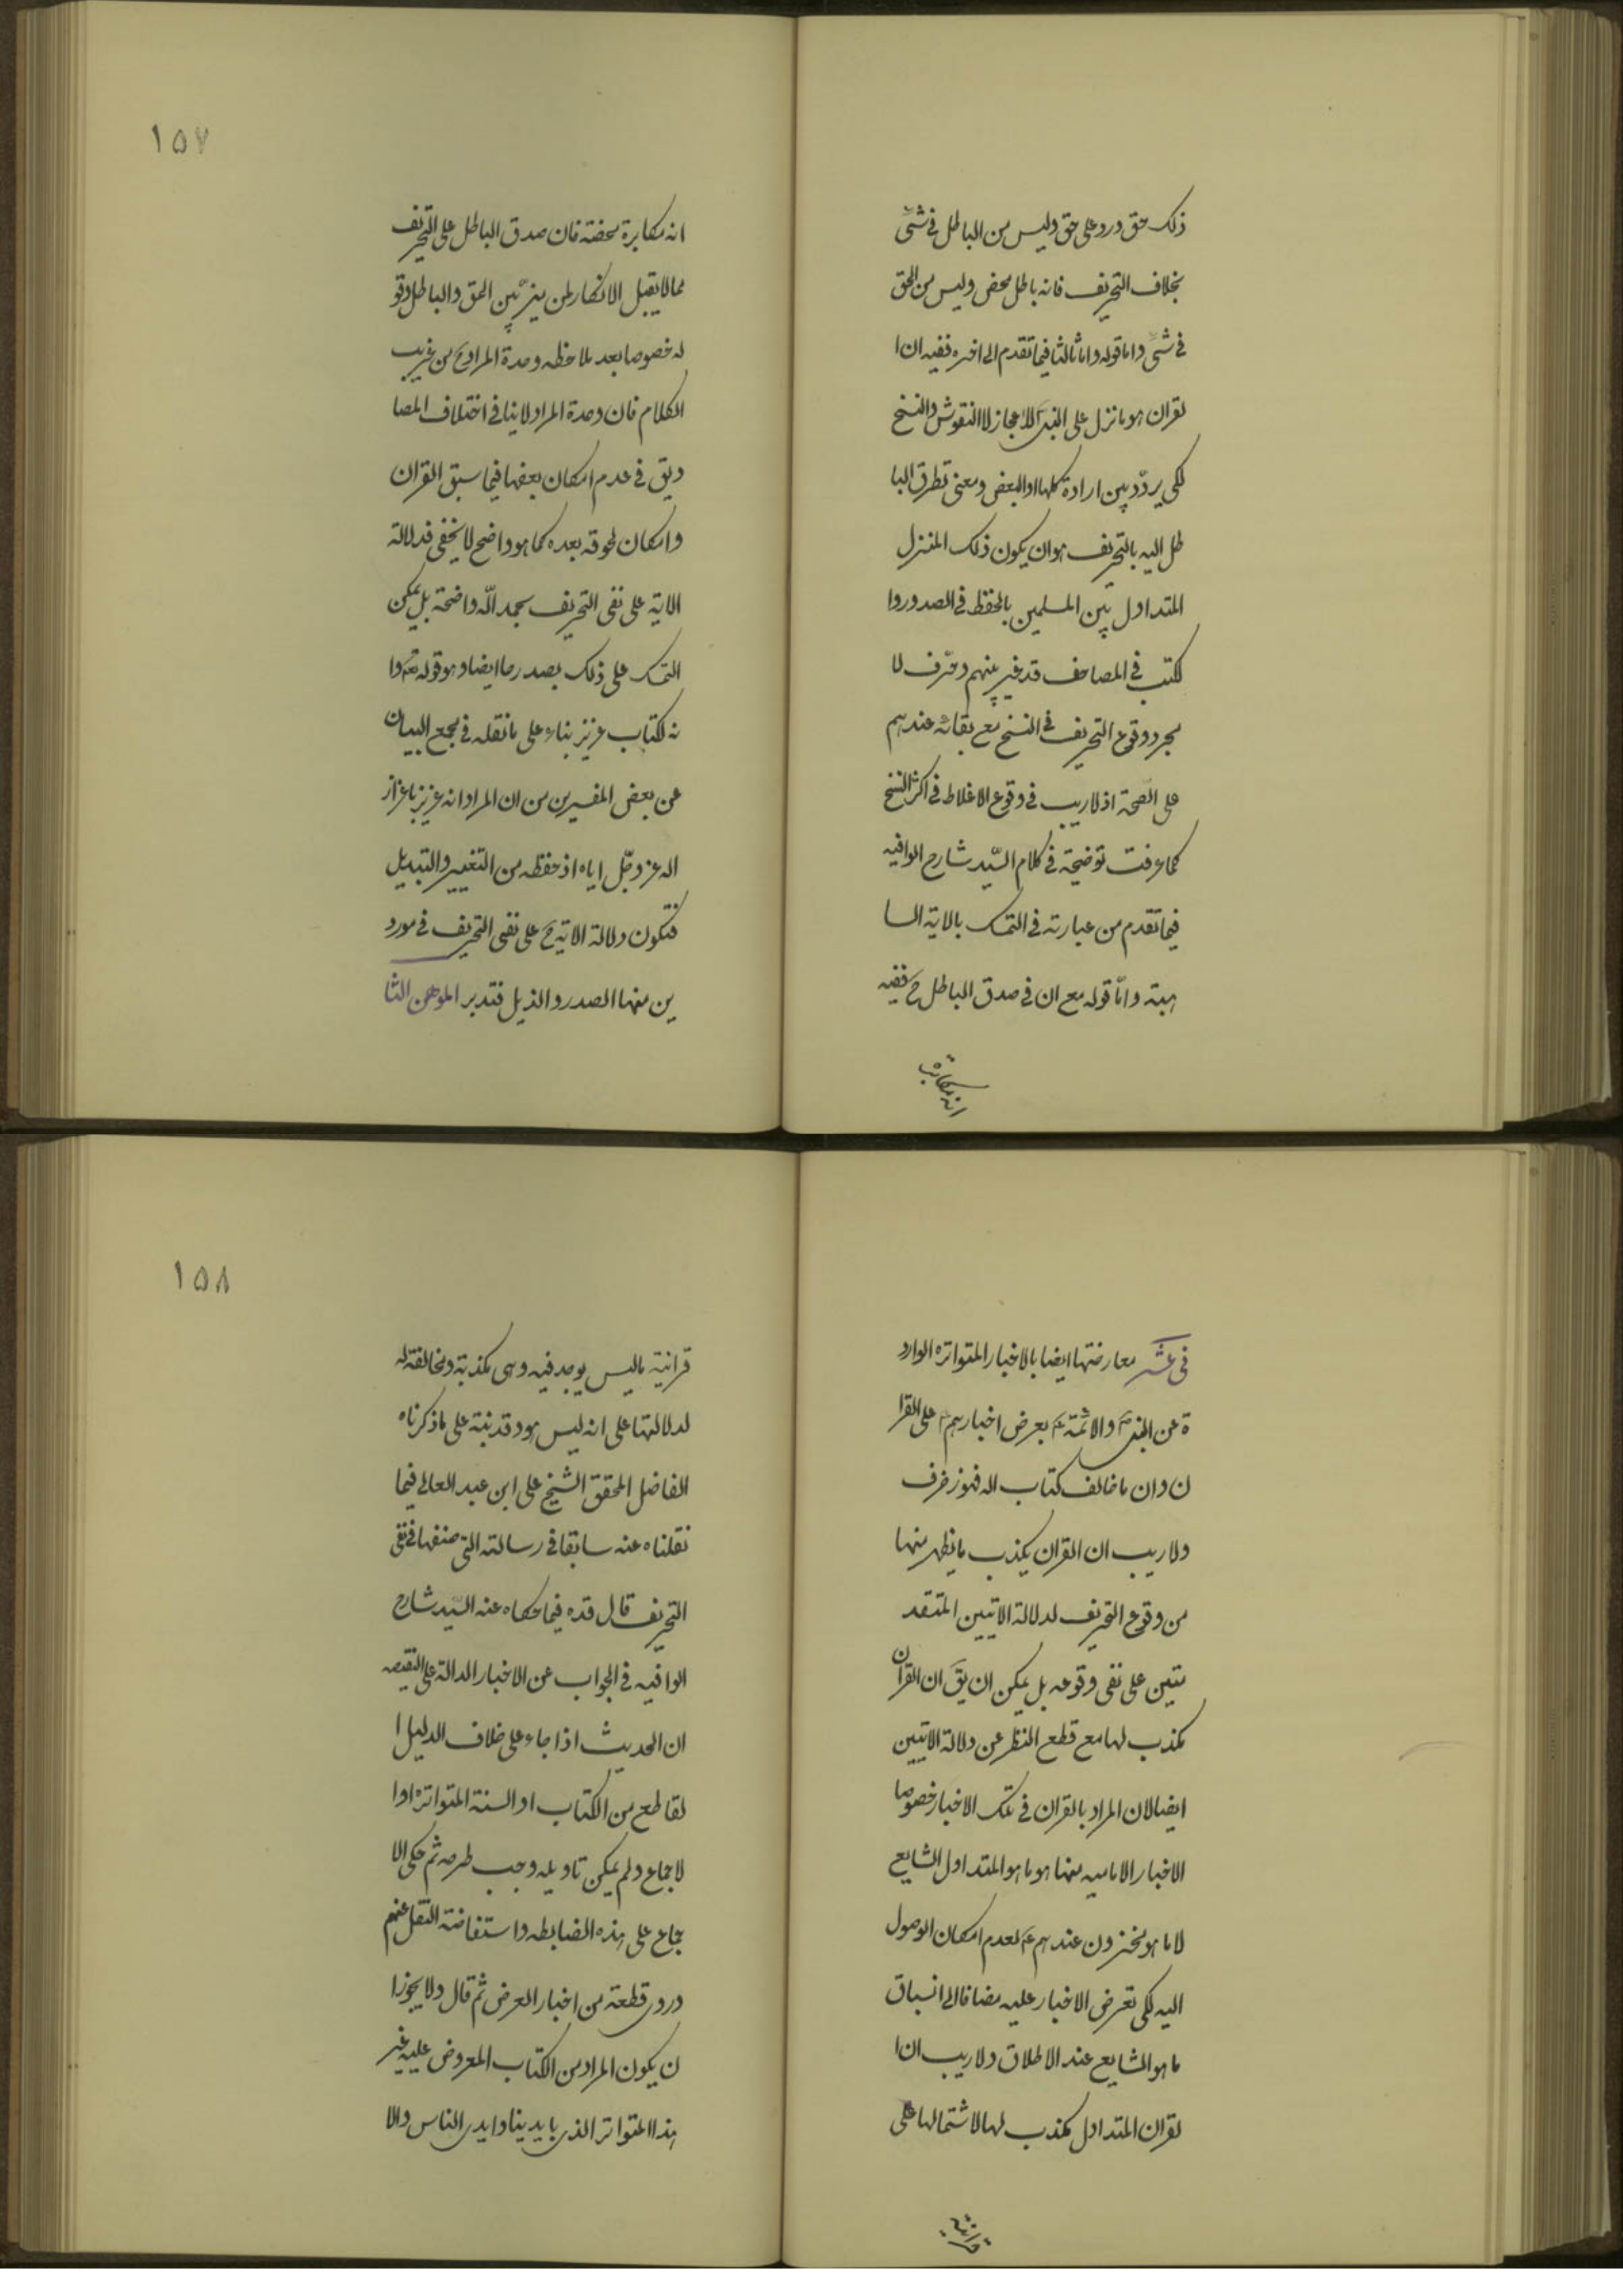 ذلك حق ورد على حق وليس من الباطل في شئ
بخلاف التحريف فانه باطل محض وليس من الحق
في شئ واما قوله واما ثالثا فيما تقدم الى اخره ففيه ان ا
لقران هو ما نزل على النبي للاعجاز لا النقوش والنسخ
لكى يردّد بين ارادة كلها او البعض ومعنى تطرق البا
طل اليه بالتحريف هو ان يكون ذلك المنزل
المتداول بين المسلمين بالحفظ في الصدور وا
لكتب في المصاحف قد غير بينهم وحرّف لا
مجرد وقوع التحريف في النسخ مع بقائه عندهم
على الصّحة اذ لا ريب في وقوع الاغلاط في اكثر النسخ
كما عرفت توضيحه في كلام السّيد شارح الوافيه
فيما تقدم من عبارته في التمسك بالاية السا
بقه وامّا قوله مع ان في صدق الباطل ح ففيه
انه مكابرة
١٥٧
انه مكابرة محضة فان صدق الباطل على التحريف
مما لا يقبل الانكار لمن ميّز بين الحق والباطل وقو
له خصوصا بعد ملاحظه وحدة المراد ح من غريب
الكلام فان وحدة المراد لا ينافى اختلاف المصا
ديق في عدم امكان بعضها فيما سبق القران
وامكان لحوقه بعده كما هو واضح لا يخفى فدلالة
الاية على نفى التحريف بحمد الله واضحة بل يمكن
التمسك على ذلك بصدرها ايضا وهو قوله تع وا
نه لكتاب عزيز بناء على ما نقله في مجمع البيان
عن بعض المفسرين من ان المراد انه عزيز باعزاز
اله عز وجّل اياه اذ حفظه من التغيير والتبديل
فتكون دلالة الاية ح على نفى التحريف في مورد
ين منها الصدر والذيل فتدبر الموهن الثا
فى عشر معارضتها ايضا بالاخبار المتواتره الوارد
ة عن النبي ص والائمة ع بعرض اخبارهم ع على القرا
ن وان ما خالف كتاب اله فهو زخرف
ولا ريب ان القران يكذب ما يظهر منها
من وقوع التحريف لدلالة الايتين المتقد
متين على نفى وقوعه بل يمكن ان يقَ ان القران
مكذب لها مع قطع النظر عن دلالة الايتين
ايضا لان المراد بالقران في تلك الاخبار خصوصا
الاخبار الاماميه منها هو ما هو المتداول الشايع
لا ما هو مخزون عندهم ع لعدم امكان الوصول
اليه لكى تعرض الاخبار عليه مضافا الى انسباق
ما هو الشايع عند الاطلاق ولا ريب ان ا
لقران المتداول مكذب لها لاشتمالها على
قرانية
١٥٨
قرانية ما ليس يوجد فيه وهى مكذبة ومخالفة له
لدلالتها على انه ليس هو وقد نبّه على ما ذكرناه
الفاضل المحقق الشيخ على ابن عبد العالى فيما
نقلناه عنه سابقا في رسالته التى صنفها في نفى
التحريف قال قده فيما حكاه عنه السّيد شارح
الوافيه في الجواب عن الاخبار الدالة على النقيصه
ان الحديث اذا جاء على خلاف الدليل ا
لقاطع من الكتاب او السنة المتواتره او ا
لاجماع ولم يمكن تاويله وجب طرحه ثم حكى الا
جماع على هذه الضابطه واستفاضة النقل عنهم
وروى قطعة من اخبار العرض ثم قال ولا يجوز ا
ن يكون المراد من الكتاب المعروض عليه غير
هذا المتواتر الذى بايدينا وايدى الناس والا